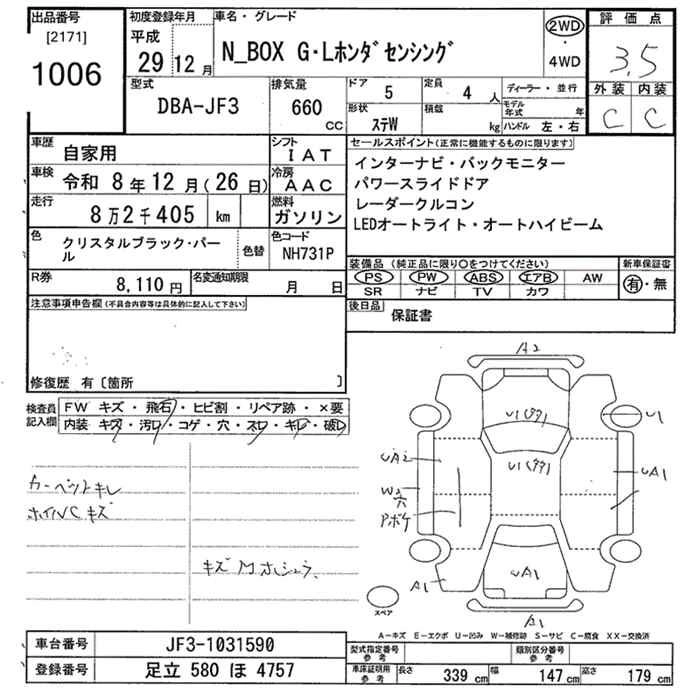 出品番号
[2171]
1006
初度登録年月
平成
29 12 月
車名・グレード
N_BOX G・Lホンダセンシング
2WD
・
4WD
評価点
3.5
外装 内装
C C
型式
DBA-JF3
排気量
660
CC
ドア
5
定員
4 人
形状
ステW
積載
kg
ディーラー・並行
モデル年式 年
ハンドル 左・右
車歴
自家用
シフト
IAT
車検
令和 8年12月(26日)
冷房
AAC
走行
8万2千405 km
燃料
ガソリン
色
クリスタルブラック・パール
色替
色コード
NH731P
R券
8,110円
名変通知期限
月 日
セールスポイント(正常に機能するものに限ります)
インターナビ・バックモニター
パワースライドドア
レーダークルコン
LEDオートライト・オートハイビーム
装備品 (純正品に限り○をつけてください)
PS PW ABS エアB AW
SR ナビ TV カワ
新車保証書
有・無
後日品
保証書
注意事項申告欄(不具合内容等は具体的に記入して下さい)
修復歴 有〔箇所 〕
検査員記入欄
FW キズ・飛石・ヒビ割・リペア跡・×要
内装 キズ・汚れ・コゲ・穴・スレ・キレ・破レ
カーペットキレ
ホイルCキズ
A2
U1
UA2
UA1
W2
アボケ
UA1
A1
A1
スペア
A-キズ E-エクボ U-凹み W-補修跡 S-サビ C-腐食 XX-交換済
車台番号
JF3-1031590
登録番号
足立 580 ほ 4757
型式指定番号
参考
類別区分番号
参考
車庫証明用
参考
長さ
339 cm
幅
147 cm
高さ
179 cm